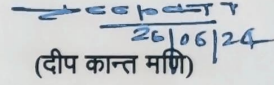 26/06/24
(दीप कान्त मणि)